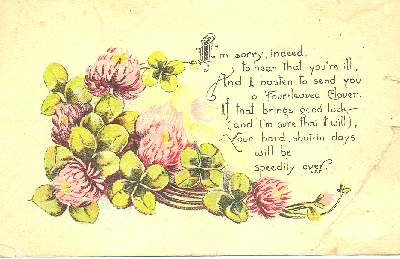 I'm sorry, indeed,
to hear that you're ill,
And I hasten to send you
Four-leaved Clover.
If that brings good luck—
(and I'm sure that it will),
Your hard, shut-in days
will be
speedily over.